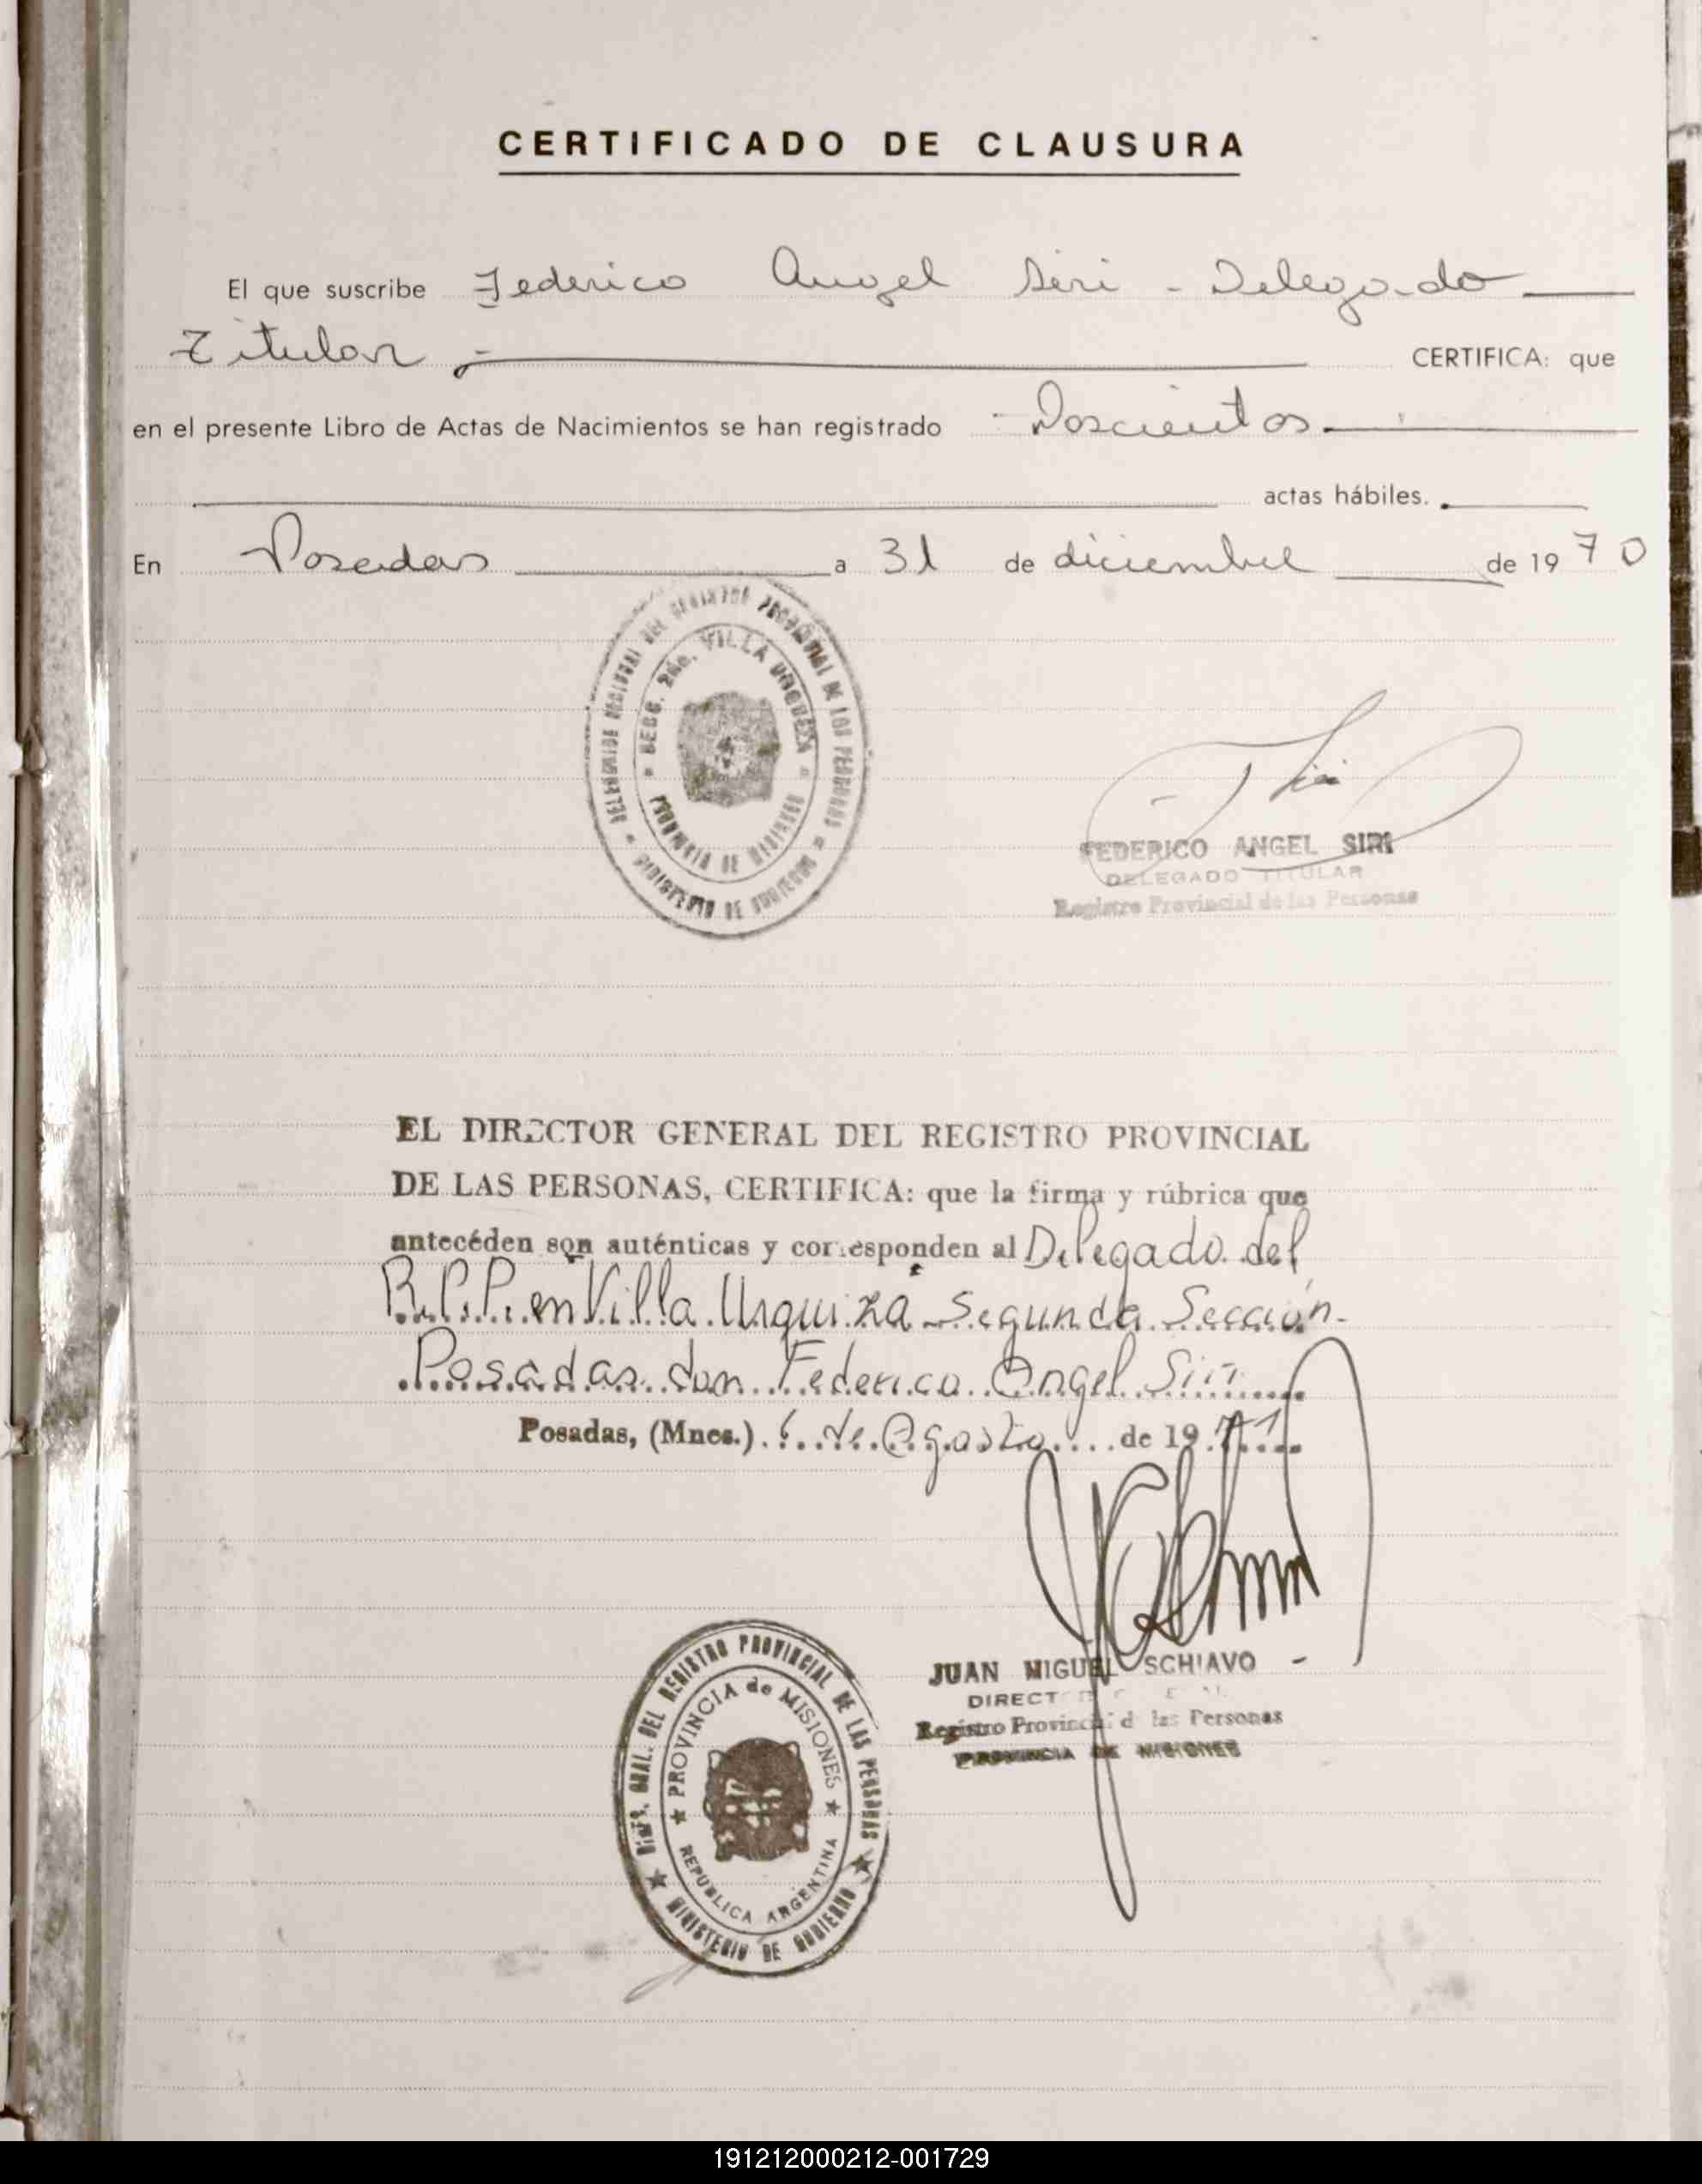 CERTIFICADO DE CLAUSURA
El que suscribe Federico Angel Siri - Delegado
Titular.- CERTIFICA: que
en el presente Libro de Actas de Nacimientos se han registrado - Doscientos.
actas hábiles.
En Posadas a 31 de diciembre de 1970
DELEGACION REGIONAL DEL REGISTRO PROVINCIAL DE LAS PERSONAS
SECC. 2da. VILLA URQUIZA
PROVINCIA DE MISIONES
MINISTERIO DE GOBIERNO
Siri
FEDERICO ANGEL SIRI
DELEGADO TITULAR
Registro Provincial de las Personas
EL DIRECTOR GENERAL DEL REGISTRO PROVINCIAL
DE LAS PERSONAS, CERTIFICA: que la firma y rúbrica que
antecéden son auténticas y corresponden al Delegado del
R.P.P. en Villa Urquiza - Segunda Sección -
Posadas don Federico Angel Siri
Posadas, (Mnes.) 6 de Agosto de 1971
JUAN MIGUEL SCHIAVO -
DIRECTOR GENERAL
Registro Provincial de las Personas
PROVINCIA DE MISIONES
DIREC. GRAL. DEL REGISTRO PROVINCIAL DE LAS PERSONAS
PROVINCIA de MISIONES
REPUBLICA ARGENTINA
MINISTERIO DE GOBIERNO
191212000212-001729